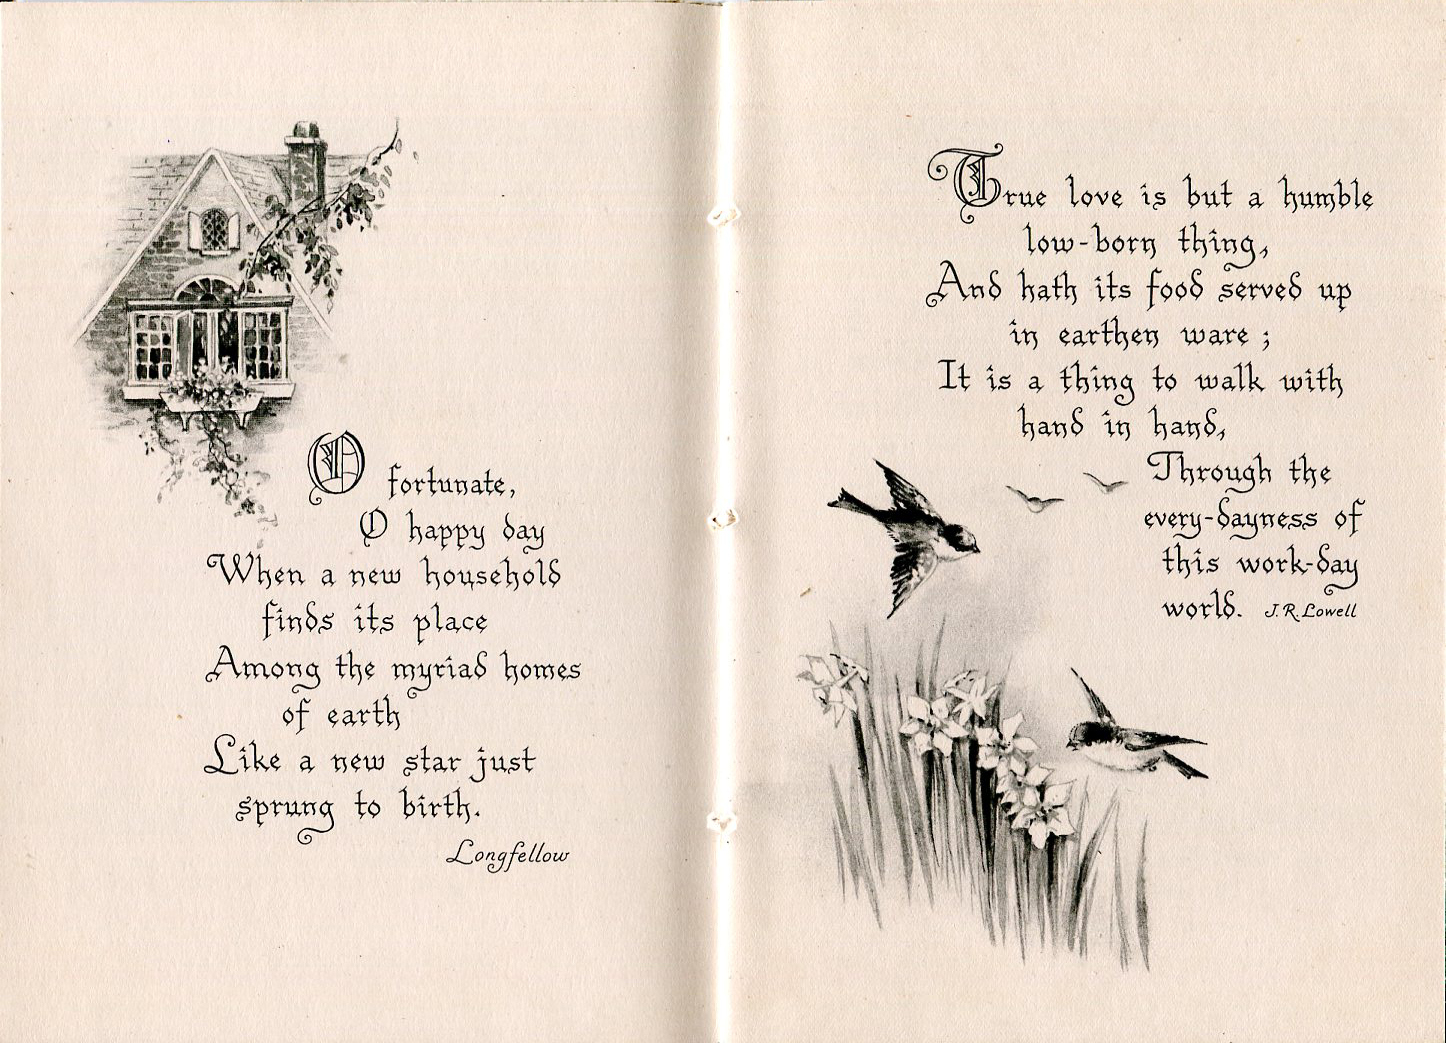 O fortunate,
O happy day
When a new household
finds its place
Among the myriad homes
of earth
Like a new star just
sprung to birth.
Longfellow
True love is but a humble
low-born thing,
And hath its food served up
in earthen ware ;
It is a thing to walk with
hand in hand,
Through the
every-dayness of
this work-day
world. J.R.Lowell